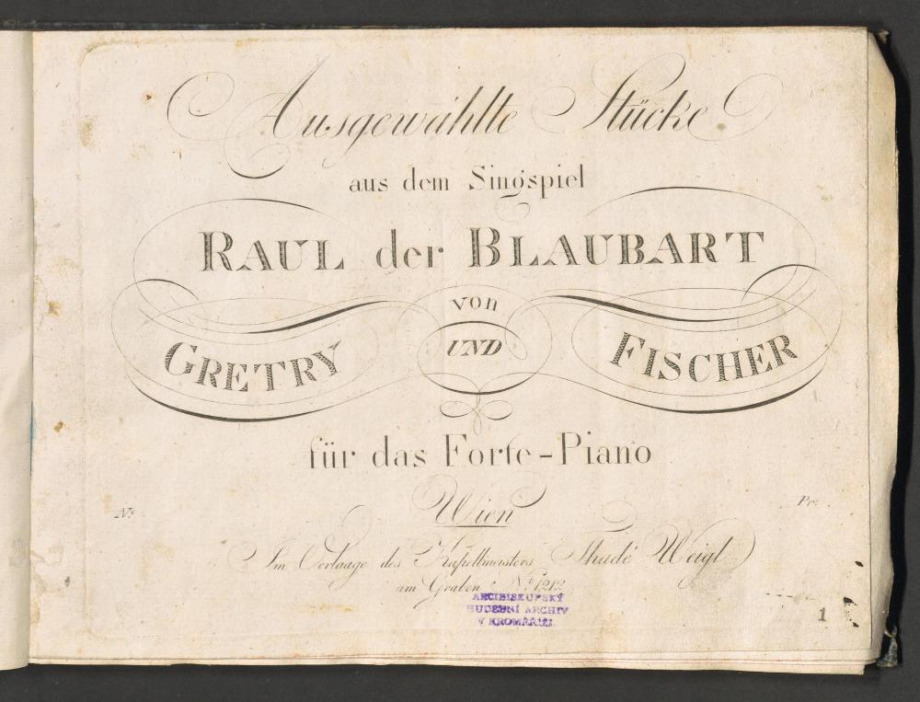 Ausgewählte Stücke
aus dem Singspiel
RAUL der BLAUBART
von
GRETRY UND FISCHER
für das Forte-Piano
Wien
No Pr:
Im Verlaage des Kapellmeisters Thadé Weigl
am Graben No 1212
ARCIBISKUPSKÝ
HUDEBNÍ ARCHIV
V KROMĚŘÍŽI
1